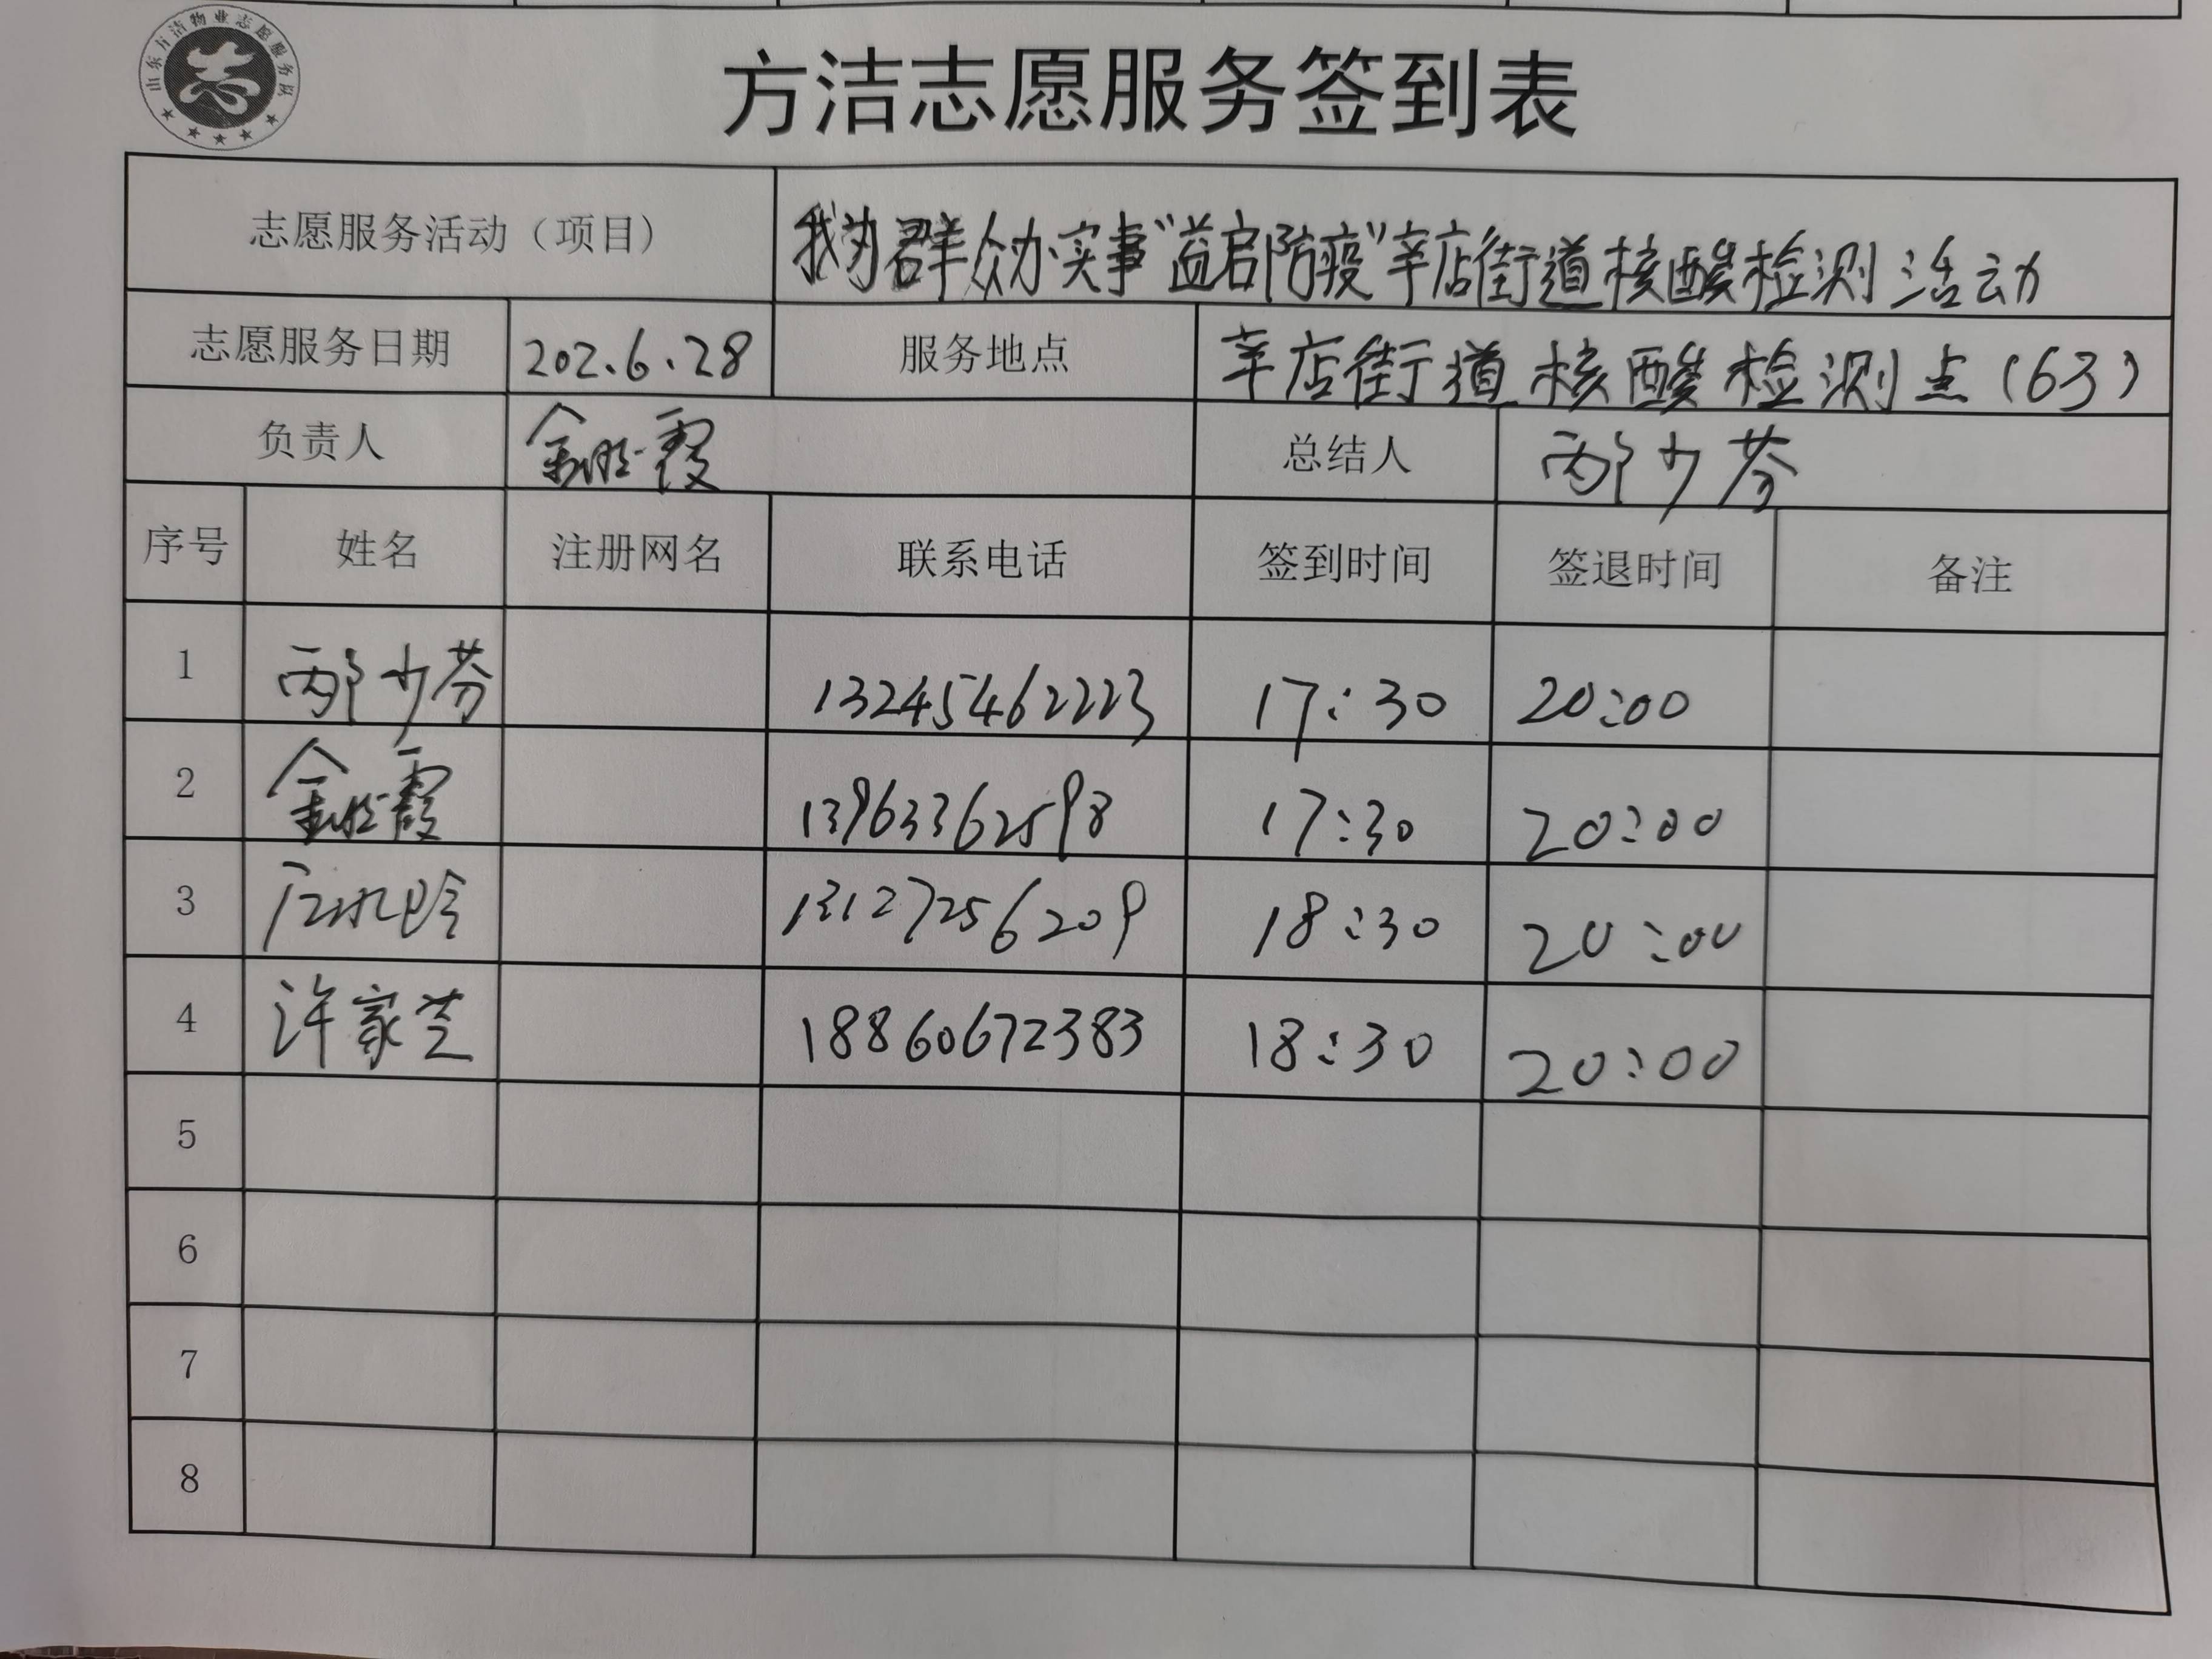 山东方洁物业志愿服务队
方洁志愿服务签到表
志愿服务活动（项目） 我为群众办实事“益启防疫”辛店街道核酸检测活动
志愿服务日期 202.6.28 服务地点 辛店街道核酸检测点(63)
负责人 金胜霞 总结人 邴少芬
序号 姓名 注册网名 联系电话 签到时间 签退时间 备注
1 邴少芬 13245462223 17:30 20:00
2 金胜霞 13963362598 17:30 20:00
3 13127256209 18:30 20:00
4 许家芝 18860672383 18:30 20:00
5
6
7
8